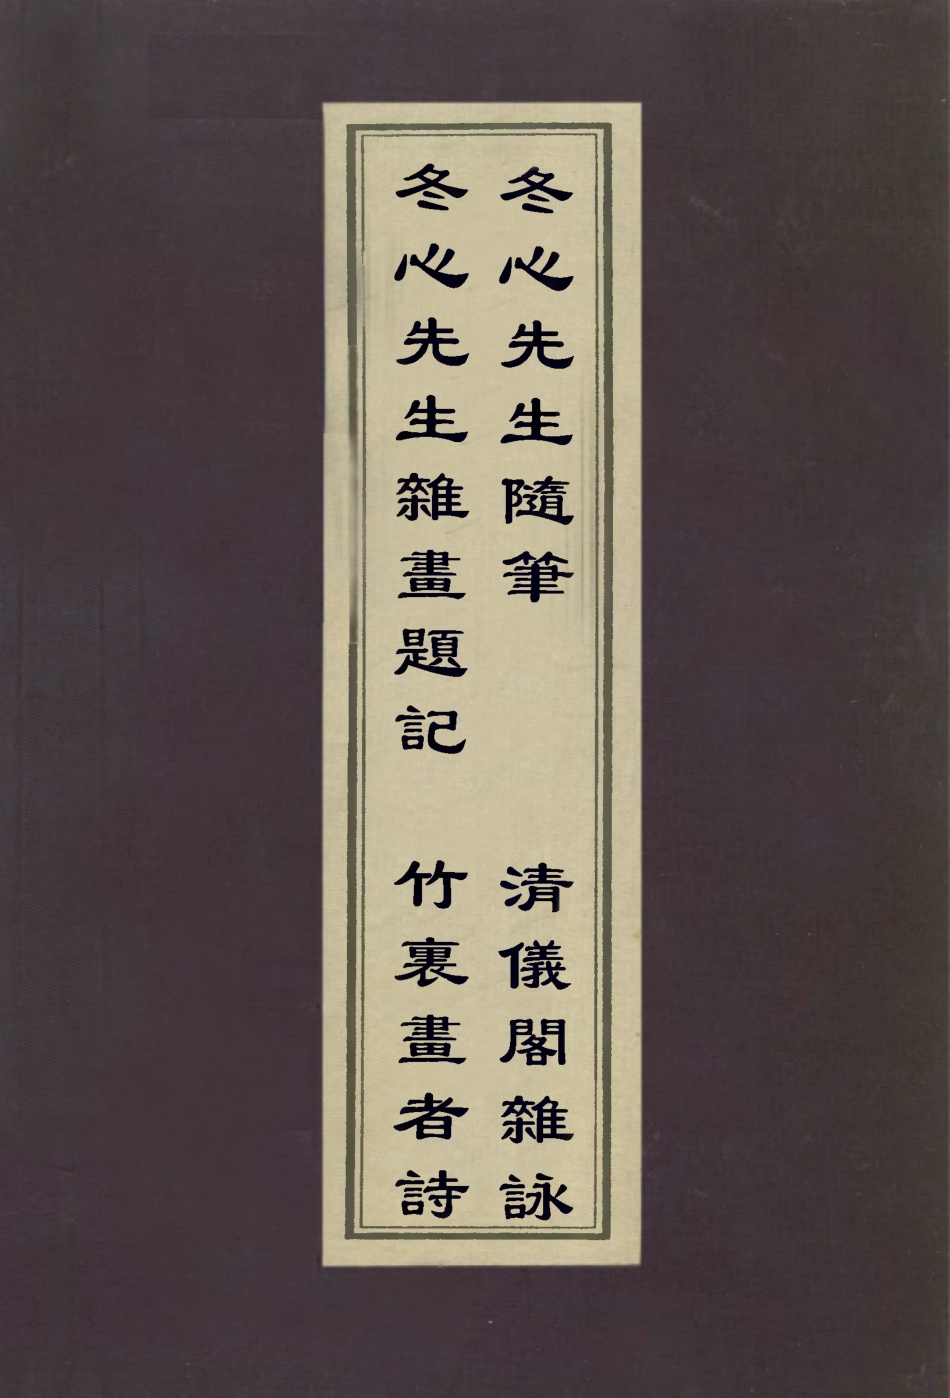 冬心先生隨筆 清儀閣雜詠
冬心先生雜畫題記 竹裏畫者詩